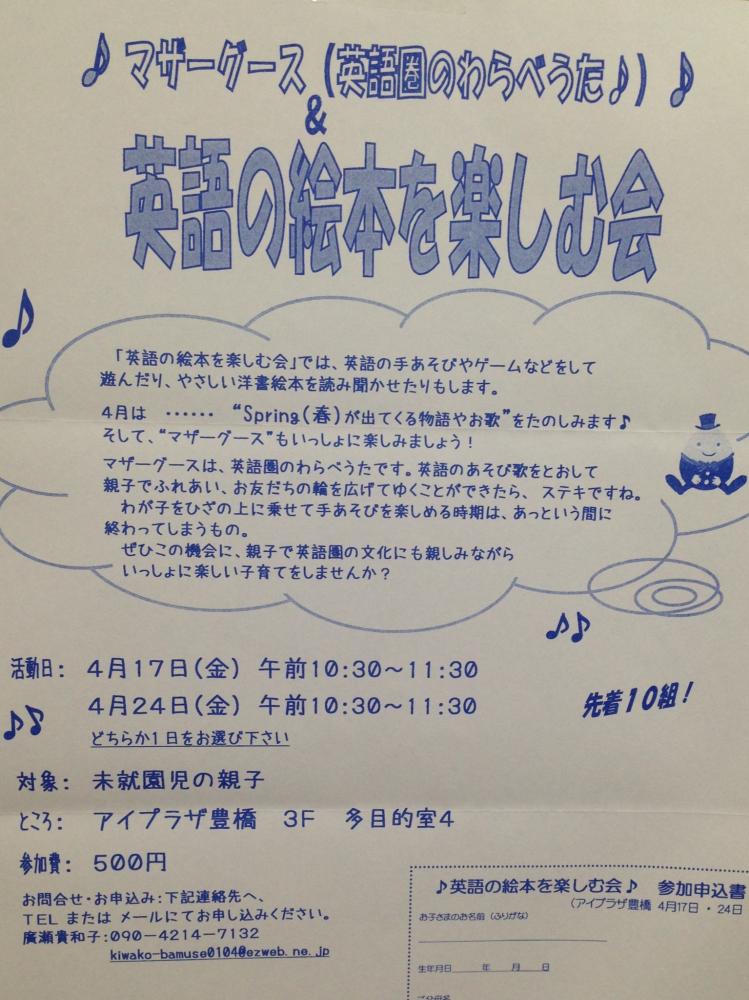 ♪ マザーグース（英語圏のわらべうた♪）♪
&
英語の絵本を楽しむ会
「英語の絵本を楽しむ会」では、英語の手あそびやゲームなどをして
遊んだり、やさしい洋書絵本を読み聞かせたりもします。
4月は ‥‥‥ “Spring(春)が出てくる物語やお歌”をたのしみます♪
そして、“マザーグース”もいっしょに楽しみましょう！
マザーグースは、英語圏のわらべうたです。英語のあそび歌をとおして
親子でふれあい、お友だちの輪を広げてゆくことができたら、ステキですね。
わが子をひざの上に乗せて手あそびを楽しめる時期は、あっという間に
終わってしまうもの。
ぜひこの機会に、親子で英語圏の文化にも親しみながら
いっしょに楽しい子育てをしませんか？
活動日： 4月17日(金) 午前10:30～11:30
4月24日(金) 午前10:30～11:30
先着10組！
どちらか1日をお選び下さい
対象： 未就園児の親子
ところ： アイプラザ豊橋 3F 多目的室4
参加費： 500円
お問合せ・お申込み：下記連絡先へ、
TEL または メールにてお申し込みください。
廣瀬貴和子：090－4214－7132
kiwako-bamuse0104@ezweb.ne.jp
♪英語の絵本を楽しむ会♪ 参加申込書
（アイプラザ豊橋 4月17日・24日
お子さまのお名前（ふりがな）
生年月日 年 月 日